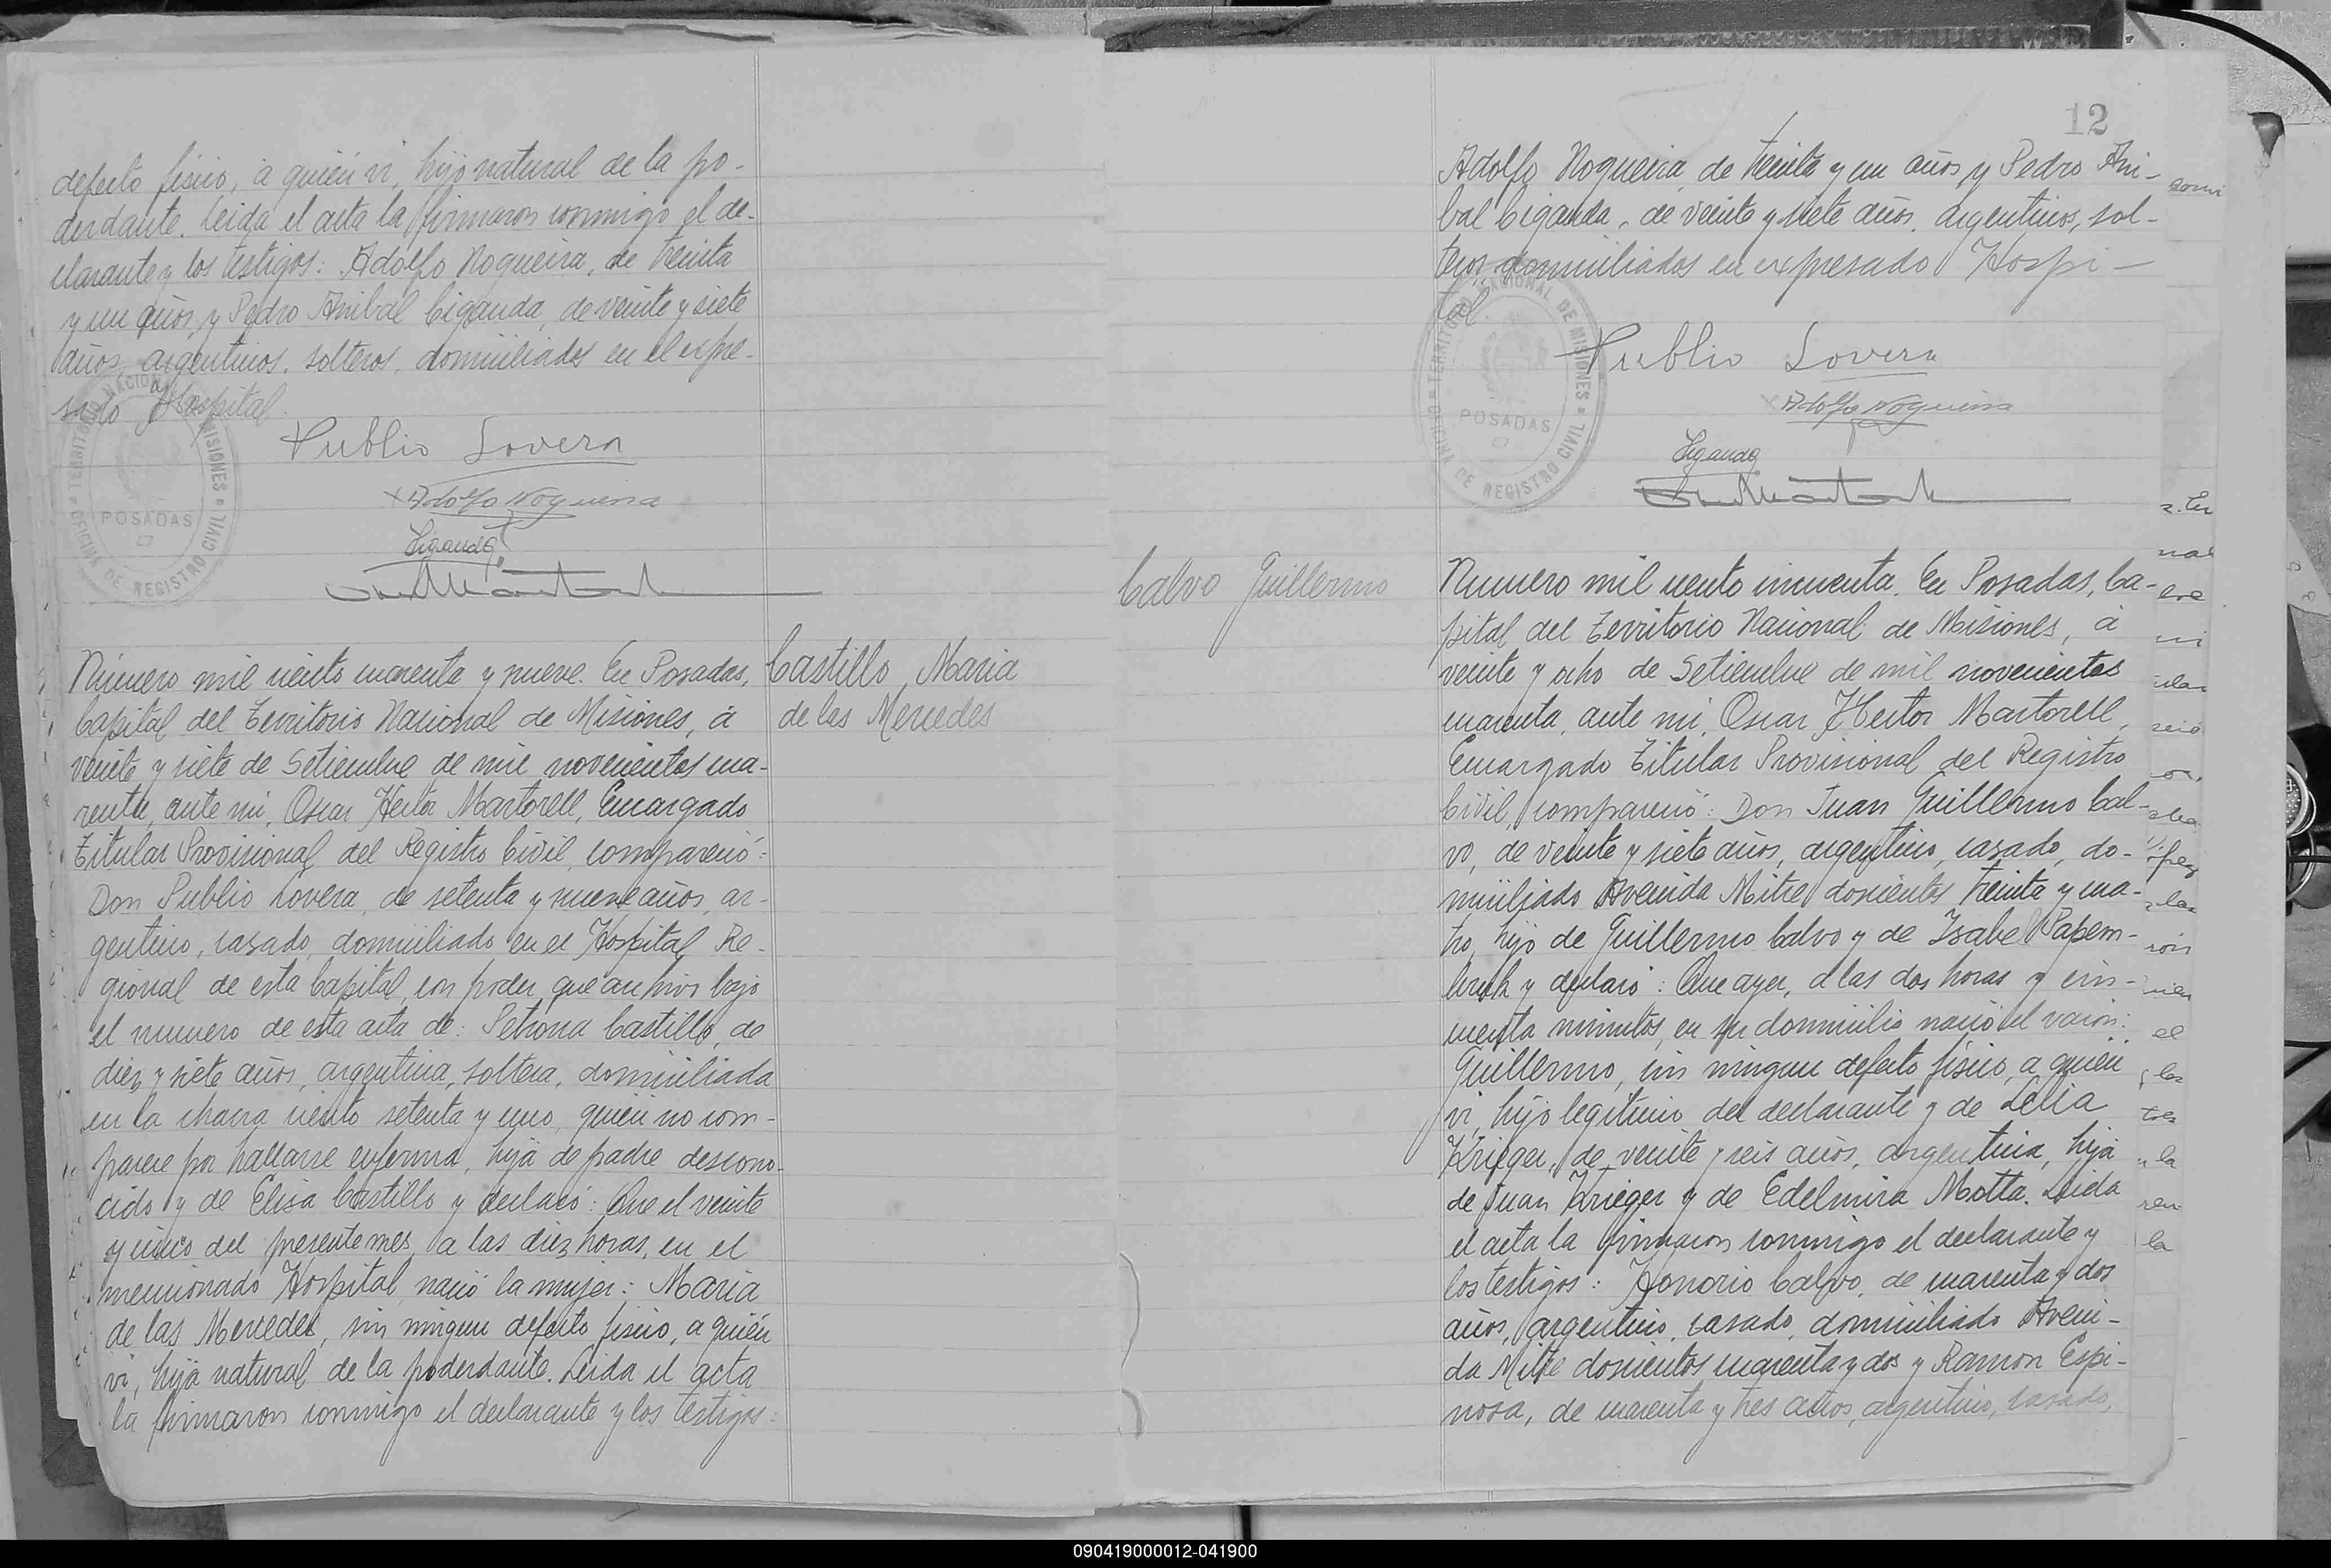 defecto físico, a quién ví, hijo natural de la po-
derdante. Leida el acta la firmaron conmigo el de-
clarante y los testigos: Adolfo Nogueira, de treinta
y un años, y Pedro Anibal Ciganda, de veinte y siete
años, argentinos, solteros, domiciliados en el expre-
sado Hospital.
TERRITORIO NACIONAL DE MISIONES
POSADAS
OFICINA DE REGISTRO CIVIL
Publio Lovera
Adolfo Nogueira
Ciganda
Número mil ciento cuarenta y nueve. En Posadas,
Castillo, Maria
de las Mercedes
Capital del Territorio Nacional de Misiones, á
veinte y siete de Setiembre de mil novecientos cua-
renta, ante mi, Oscar Hector Martorell, Encargado
Titular Provisional del Registro Civil, compareció:
Don Publio Lovera, de setenta y nueve años, ar-
gentino, casado, domiciliado en el Hospital Re-
gional de esta Capital, con poder que archivo bajo
el numero de esta acta de: Petrona Castillo, de
diez y siete años, argentina, soltera, domiciliada
en la chacra ciento setenta y uno, quién no com-
parece por hallarse enferma, hija de padre descono-
cido y de Elisa Castillo y declaró: Que el veinte
y cinco del presente mes, a las diez horas, en el
mencionado Hospital, nació la mujer: Maria
de las Mercedes, sin ningun defecto físico, a quién
ví, hija natural de la poderdante. Leida el acta
la firmaron conmigo el declarante y los testigos:
12
Adolfo Nogueira, de treinta y un años y Pedro Ani-
bal Ciganda, de veinte y siete años, argentinos, sol-
teros, domiciliados en expresado Hospi-
tal.
TERRITORIO NACIONAL DE MISIONES
POSADAS
OFICINA DE REGISTRO CIVIL
Publio Lovera
Adolfo Nogueira
Ciganda
Calvo Guillermo
Numero mil ciento cincuenta. En Posadas, Ca-
pital del Territorio Nacional de Misiones, á
veinte y ocho de Setiembre de mil novecientos
cuarenta, ante mi, Oscar Hector Martorell,
Encargado Titular Provisional del Registro
Civil, compareció: Don Juan Guillermo Cal-
vo, de veinte y siete años, argentino, casado, do-
miciliado Avenida Mitre doscientos treinta y cua-
tro, hijo de Guillermo Calvo y de Isabel Papem-
bruk y declaró: Que ayer, a las dos horas y cin-
cuenta minutos, en su domicilio nació el varón:
Guillermo, sin ningun defecto físico, a quién
ví, hijo legitimo del declarante y de Lelia
Krieger, de veinte y seis años, argentina, hija
de Juan Krieger y de Edelmira Motta. Leida
el acta la firmaron conmigo el declarante y
los testigos: Honorio Calvo, de cuarenta y dos
años, argentino, casado, domiciliado Aveni-
da Mitre doscientos cuarenta y dos y Ramon Espi-
nosa, de cuarenta y tres años, argentino, casado,
090419000012-041900